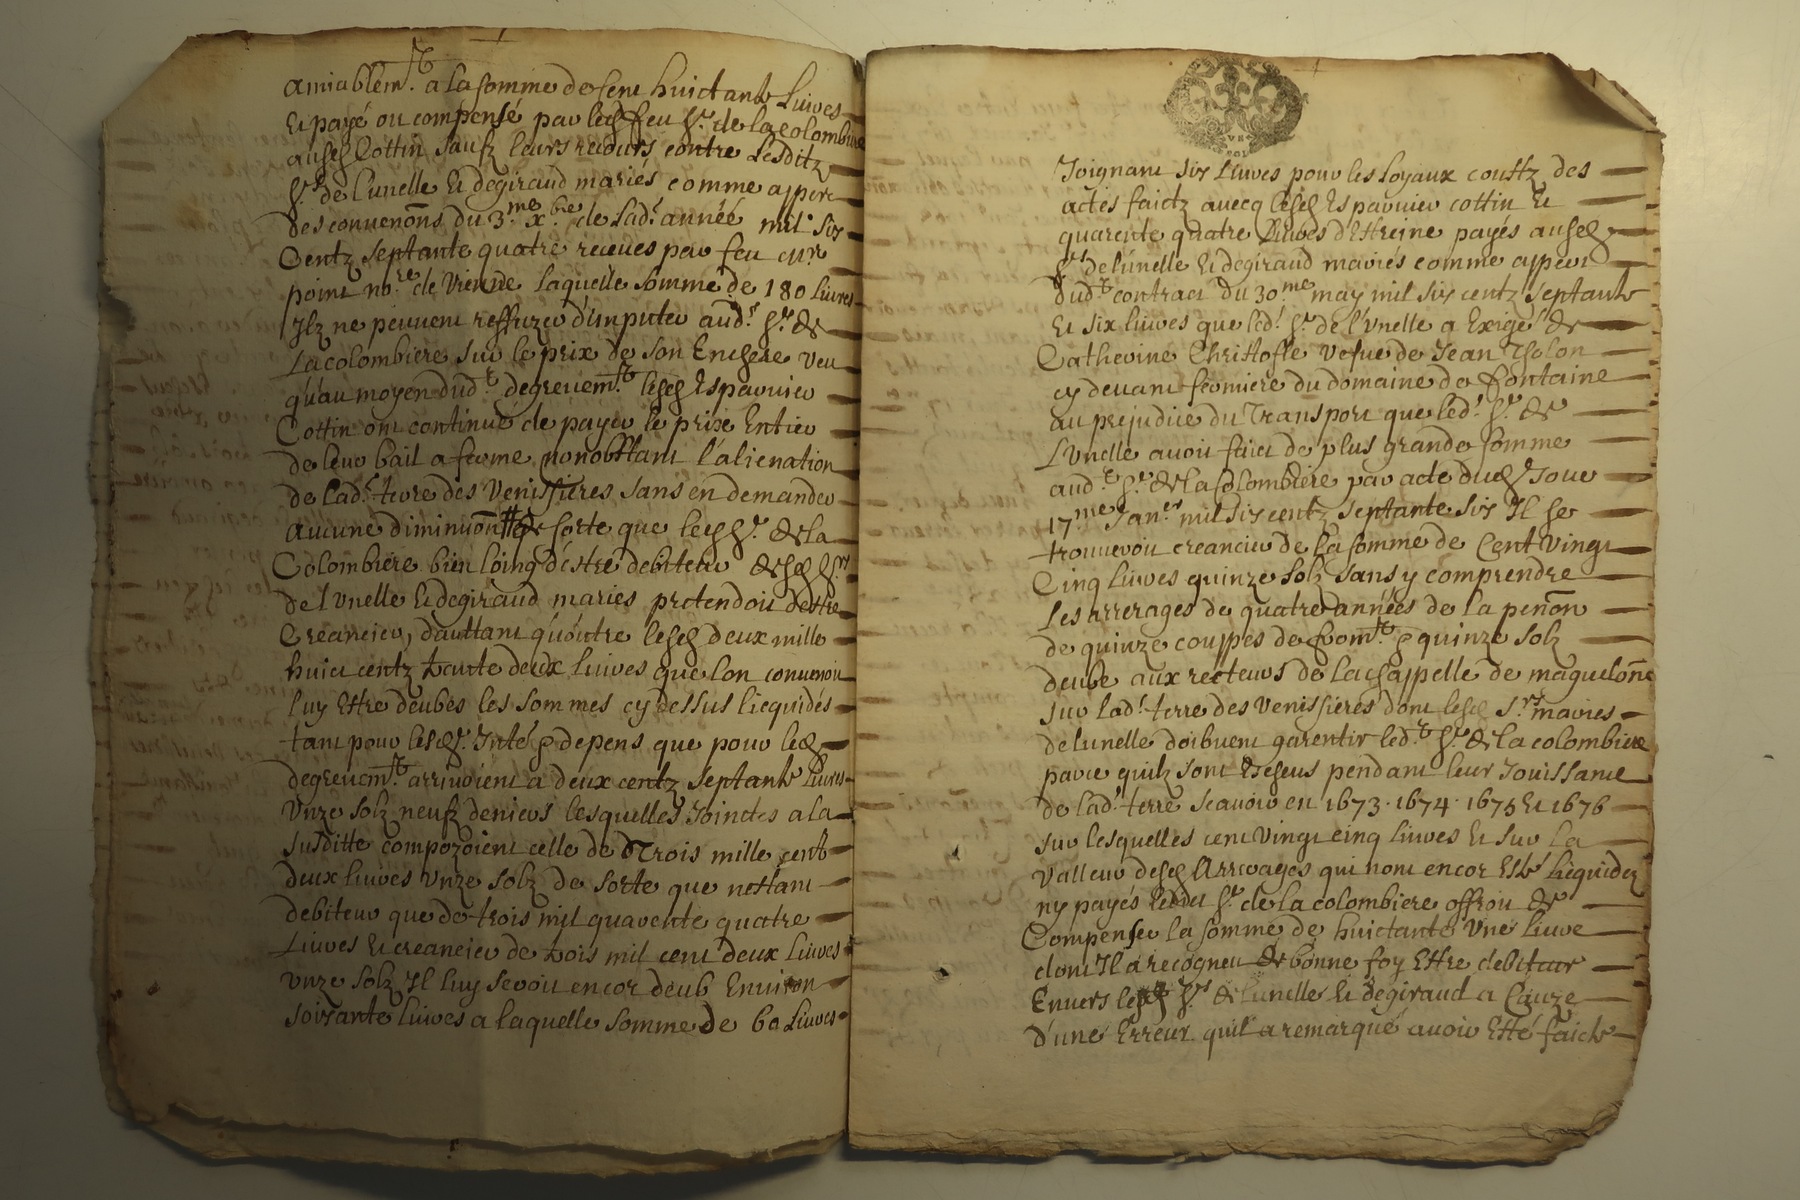 amiablem.t a la somme de cent huictante Livres
Et payé ou compensé par led feu Sr. de la colombiere
ausd Cottin sauf leurs recours contre Lesditz
Srs de lunelle Et degiraud mariés comme appert
des convenoñs du 3.me xbre de lad.t année mil six
Centz septante quatre receues par feu mr
point no.re de Vienne laquelle somme de 180 livres
Ilz ne peuvent reffuzer d'imputer aud.t Sr. de
Lacolombiere sur le prix de son Enchere veu
qu'au moyen dud.t degrevem.t lesd Esparvier
Cottin ont continué de payer le prix Entier
de leur bail a ferme nonobstant l'alienation
de lad.t terre des Venissieres sans en demander
aucune diminuon de sorte que led Sr. de la
Colombiere bien loing d'estre debiteur desd Srs
de lvnelle Et degiraud mariés pretendoit destre
Creancier, dauttant qu'outre lesd deux mille
huict centz trente deux livres que lon convenoit
luy Estre deubes les sommes cy dessus liequidés
tant pour lesd Inté & depens que pour led
degrevem.t arrivoient a deux centz septante livres
Vnze solz neufz deniers lesquelles Jointes a la
susditte compozoient celle de Trois mille cent
deux livres Vnze solz de sorte que nestant
debiteur que de trois mil quarente quatre
Livres Et creancier de trois mil cent deux livres
vnze solz Il luy seroit encor deub Environ
soixante livres a laquelle somme de 60 Livres
Joignant six Livres pour les loyaux coustz des
actes faictz avecq lesd Esparvier cottin Et
quarente quatre Livres d'Estreine payés ausd
Srs de lunelle Et degiraud mariés comme appert
dud.t contract du 30.me may mil six centz septante
Et six livres que led.t Sr. de l'vnelle a Exigé de
Catherine Christofle vefve de Jean Tholon
cy devant fermiere du domaine de fontaine
au prejudice du Transport que led.t Sr. de
Lvnelle avoit faict de plus grande somme
aud.t Sr. de la Colombiere par acte dud Jour
17.me Jan.er mil six centz septante six Il se
trouveroit creancier de la somme de Cent Vingt
Cinq Livres quinze solz sans y comprendre
les arrerages de quatre années de la penoñ
de quinze couppes de from.t & quinze solz
deube aux recteurs de la chappelle de maguelonne
sur lad.t terre des Venissieres dont lesd S.rs mariés
de lunelle doibvent garentir led.t Sr. de la colombiere
parce quilz sont Escheus pendant leur Jouissance
de lad.t terre scavoir en 1673. 1674. 1675 Et 1676
sur lesquelles cent Vingt cinq livres Et sur la
Valleur desd Arrerages qui nont encor Esté Liequidez
ny payés Ledict Sr. de la colombiere offroit de
Compenser la somme de huictante Vne livre
dont Il a recogneu de bonne foy Estre debiteur
Envers lesd Srs de lunelle Et degiraud a Cauze
d'une Erreur quil a remarqué avoir Esté faicte